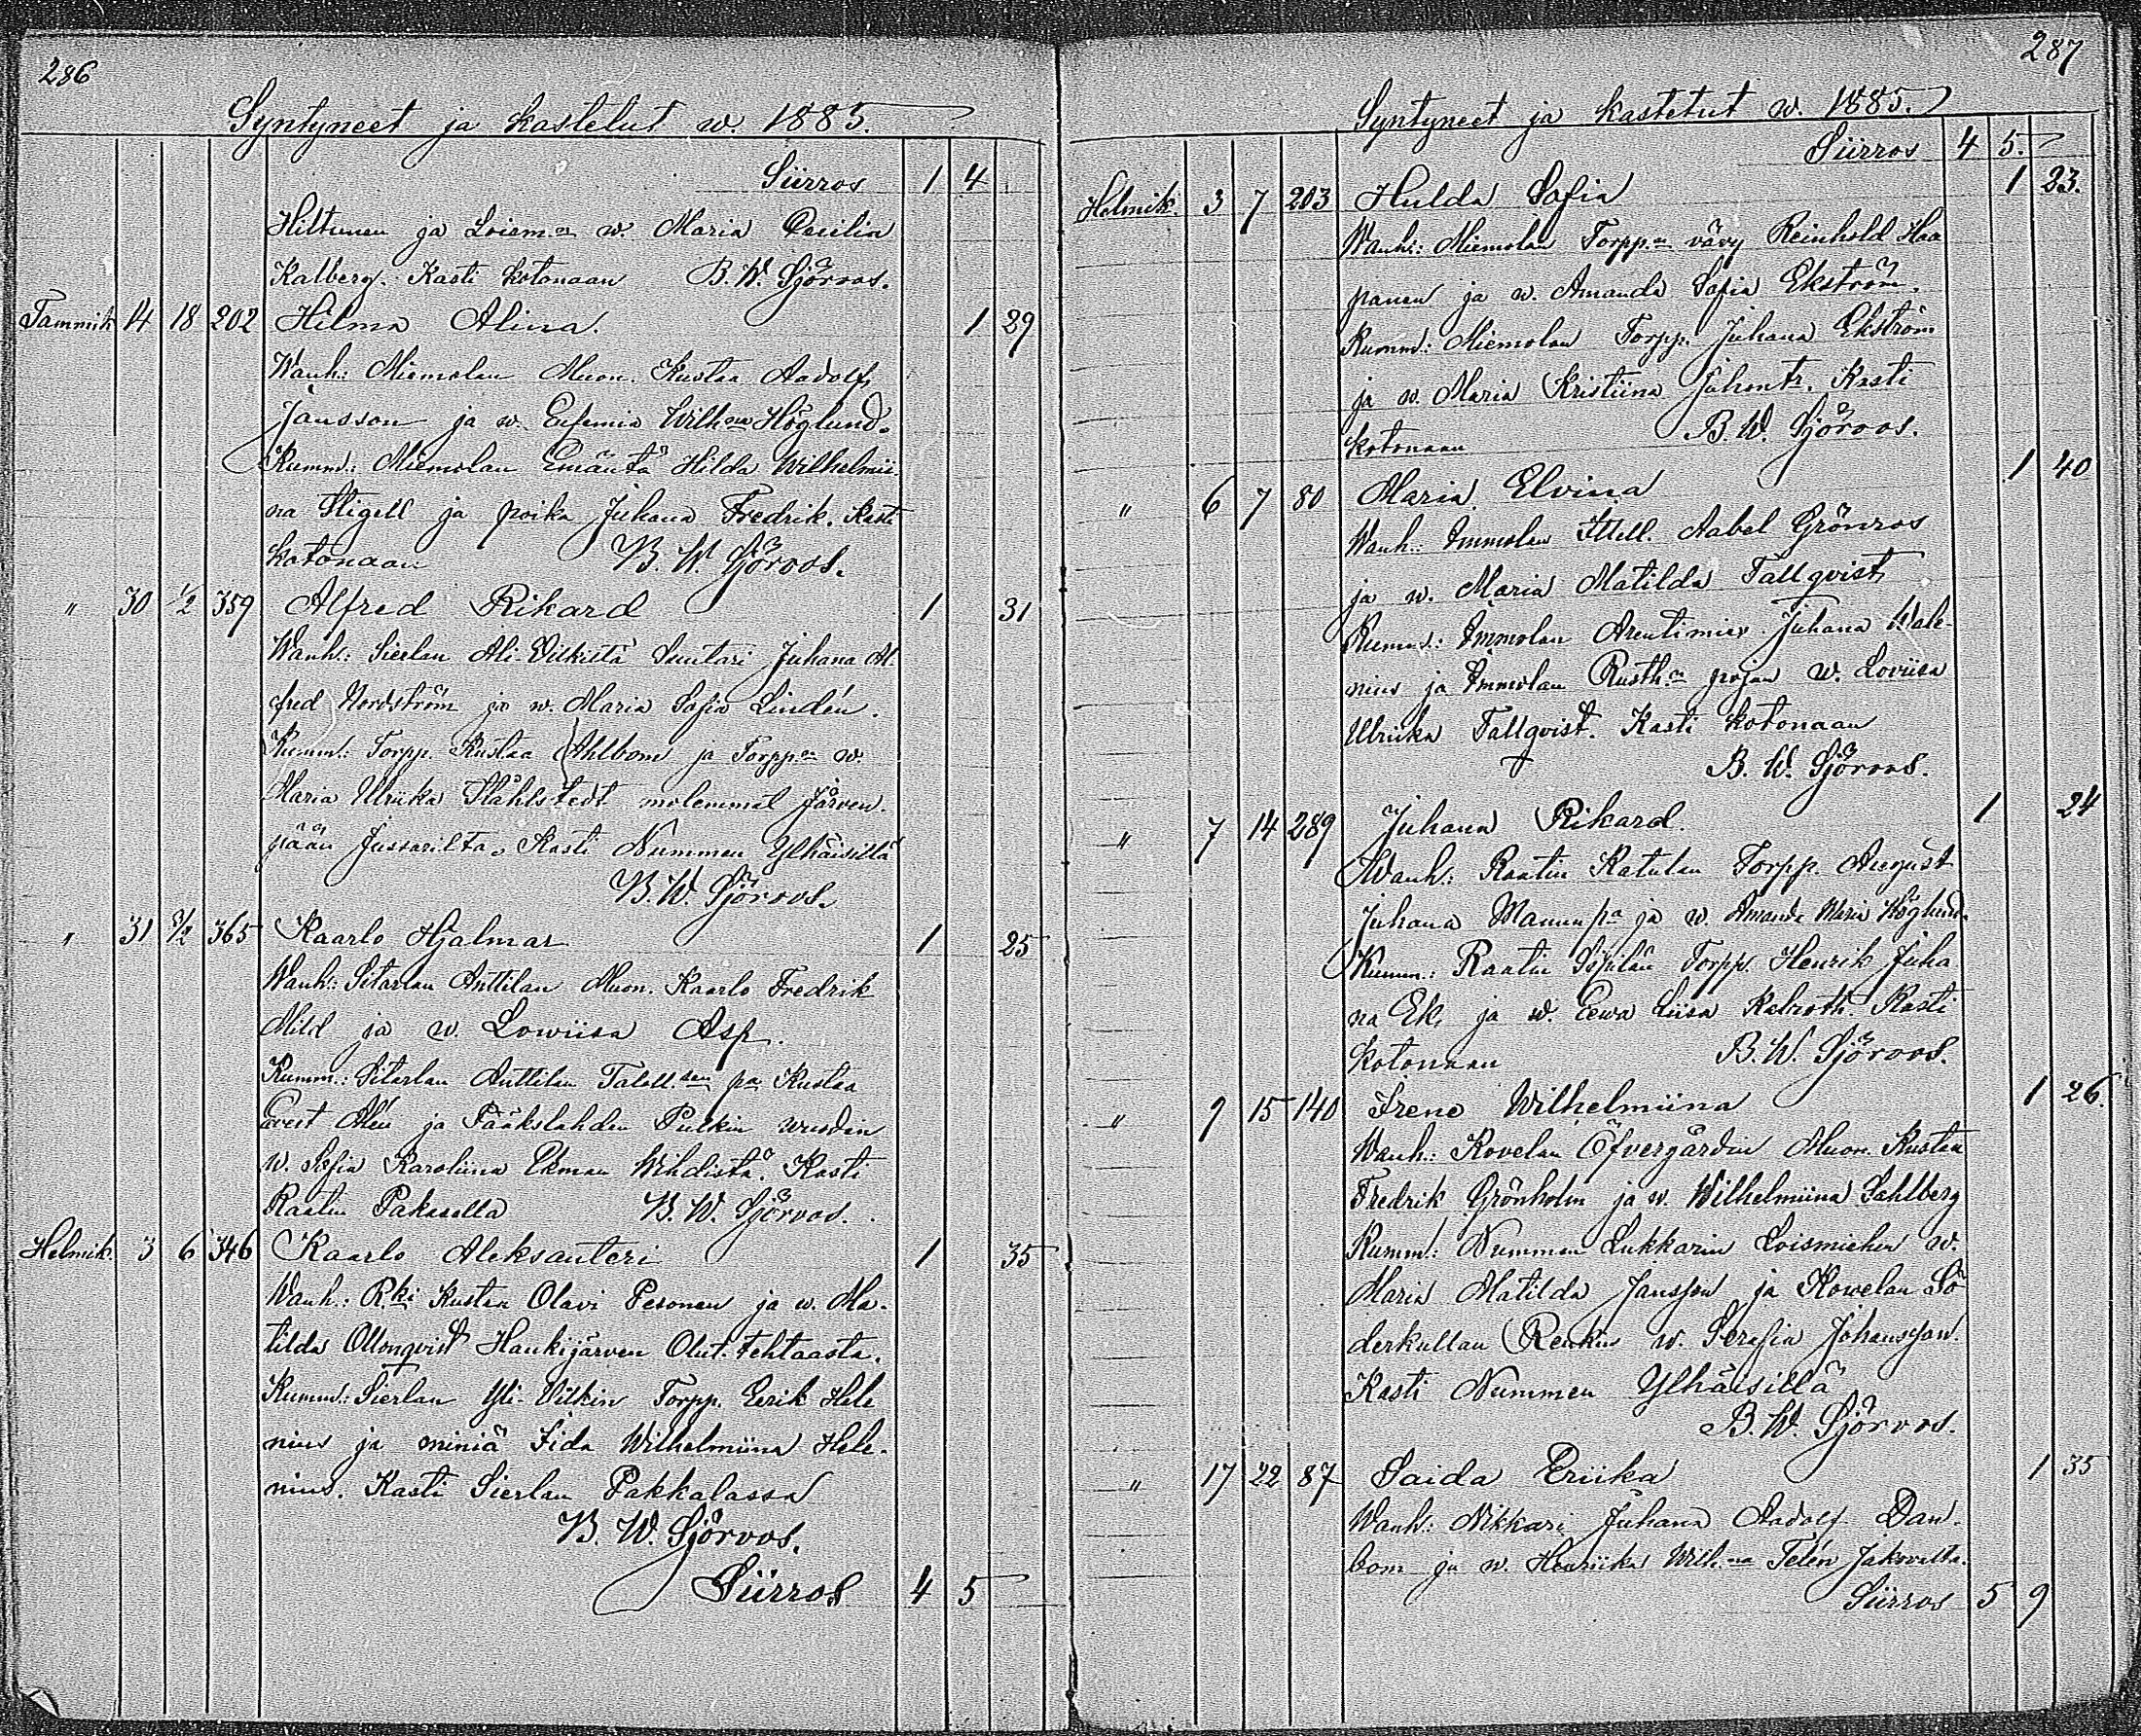 286
Syntyneet ja kastetut w. 1885.
Siirros 1 4
Hiltunen ja Loism:n w. Maria Cecilia
Kalberg. Kasti kotonaan B. W. Sjöroos.
Tammik 14 18 202 Hilma Alina. 1 29
Wanh: Miemolan Muon. Kustaa Aadolf
Jansson ja w. Eufemia Wilh:na Höglund.
Kumm: Miemolan Emäntä Hilda Wilhelmii-
na Stigell ja poika Juhana Fredrik. Kasti
kotonaan B. W. Sjöroos.
" 30 1/2 359 Alfred Rikard 1 31
Wanh: Sierlan Ali-Vilkiltä Suutari Juhana Al-
fred Nordström ja w. Maria Sofia Lindén.
Kumm: Torpp. Kustaa Ahlbom ja Torpp:n w.
Maria Ulriika Ståhlstedt molemmat Järven-
pään Jussarilta. Kasti Nummen Ylhäisillä
B. W. Sjöroos.
" 31 8/2 365 Kaarlo Hjalmar 1 25
Wanh: Sitarlan Anttilan Muon. Kaarlo Fredrik
Mild ja w. Lowiisa Asp.
Kumm: Sitarlan Anttilan Talell:sen pa Kustaa
Evert Alén ja Pääkslahden Pulkin wuodin
w. Sofia Karoliina Ekman Wihdistä. Kasti
Raatin Pakasella B. W. Sjöroos.
Helmik. 3 6 346 Kaarlo Aleksanteri 1 35
Wanh: R:ki Kustaa Olavi Pesonen ja w. Ma-
tilda Ollonqvist Haukijärven Olut-tehtaasta.
Kumm: Sierlan Yli-Vilkin Torpp. Eerik Hele
nius ja miniä Iida Wilhelmiina Hele-
nius. Kasti Sierlan Pakkalassa
B. W. Sjöroos.
Siirros 4 5
287
Syntyneet ja kastetut w. 1885.
Siirros 4 5.
Helmik. 3 7 203 Hulda Sofia 1 23.
Wanh: Miemolan Torpp:n vävy Reinhold Haa
panen ja w. Amanda Sofia Ekström.
Kumm: Miemolan Torpp. Juhana Ekström
ja w. Maria Kristiina Juhontr. Kasti
kotonaan B. W. Sjöroos.
" 6 7 80 Maria Elvina 1 40
Wanh: Immolan Itell. Aabel Grönroos
ja w. Maria Matilda Tallqvist
Kumm: Immolan Arentimies Juhana Wale-
nius ja Immolan Rusth:n pojan w. Loviisa
Ulriika Tallqvist. Kasti kotonaan
B. W. Sjöroos.
" 7 14 289 Juhana Rikard. 1 24
Wanh: Raatin Katulan Torpp. August
Juhana Manun pa ja w. Amanda Maria Höglund.
Kumm: Raatin Torpp. Henrik Juha
na Ek ja w. Eewa Liisa Kalroth. Kasti
kotonaan B. W. Sjöroos.
" 9 15 140 Irene Wilhelmiina 1 26.
Wanh: Kovelan Öfvergårdin Muon. Kustaa
Fredrik Grönholm ja w. Wilhelmiina Sahlberg
Kumm: Nummen Lukkarin Loismiehen w.
Maria Matilda Jansson ja Kowelan Sö
derkullan Renkin w. Serafia Johansson.
Kasti Nummen Ylhäisillä
B. W. Sjöroos.
" 17 22 87 Saida Eriika 1 35
Wanh: Nikkari Juhana Aadolf Dan-
bom ja w. Henriika Wilh:na Telén Jakovalta.
Siirros 5 9